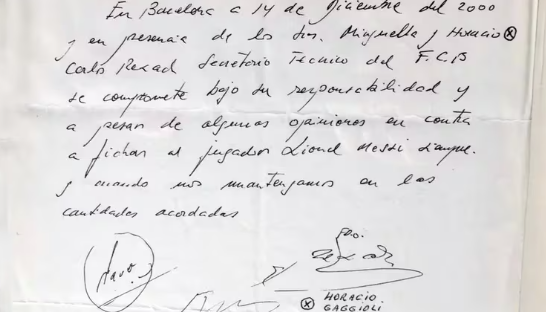 En Barcelona a 14 de Diciembre del 2000
y en presencia de los Srs. Minguella y Horacio ⓧ
Carlo Rexach Secretario Tecnico del F.C.B
se compromete bajo su responsabilidad y
a pesar de algunas opiniones en contra
a fichar al jugador Lionel Messi siempre
y cuando nos mantengamos en las
cantidades acordadas
Fdo.
ⓧ HORACIO
GAGGIOLI